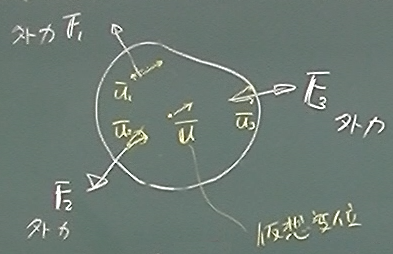 外力 F̅₁
u̅₁
u̅₂
u̅
u̅₃
F̅₃
外力
F̅₂
外力
仮想変位